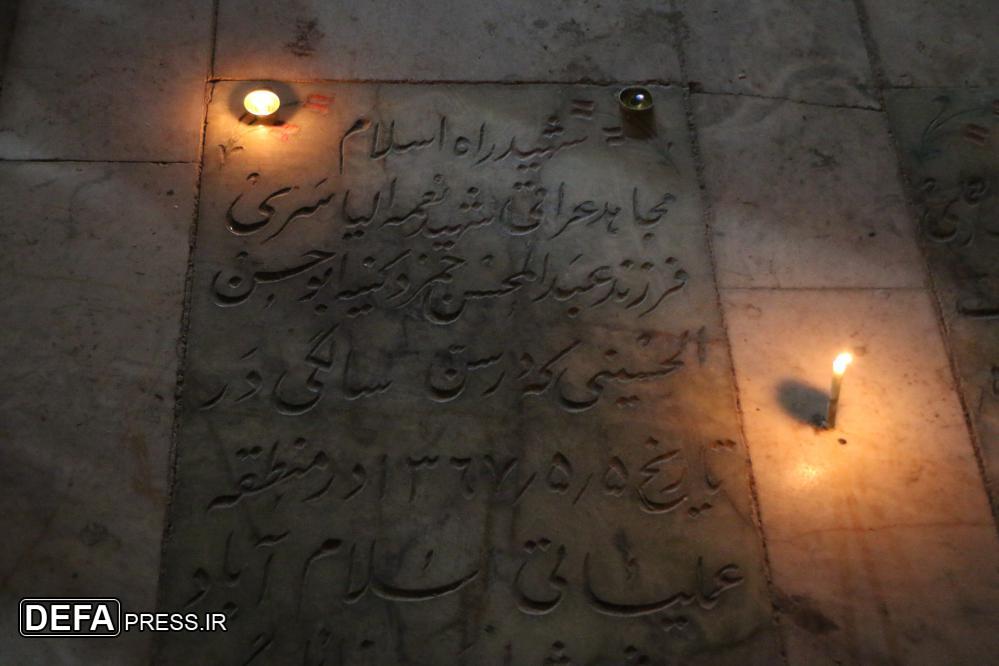 شهید راه اسلام
مجاهد عراقی الشهید نعمه الیاسری
فرزند عبدالمحسن حمزه کنیه ابوحسن
الحسینی که در سن سالگی در
تاریخ ۱۳۶۷/۵/۵ در منطقه
عملیاتی اسلام آباد
DEFAPRESS.IR